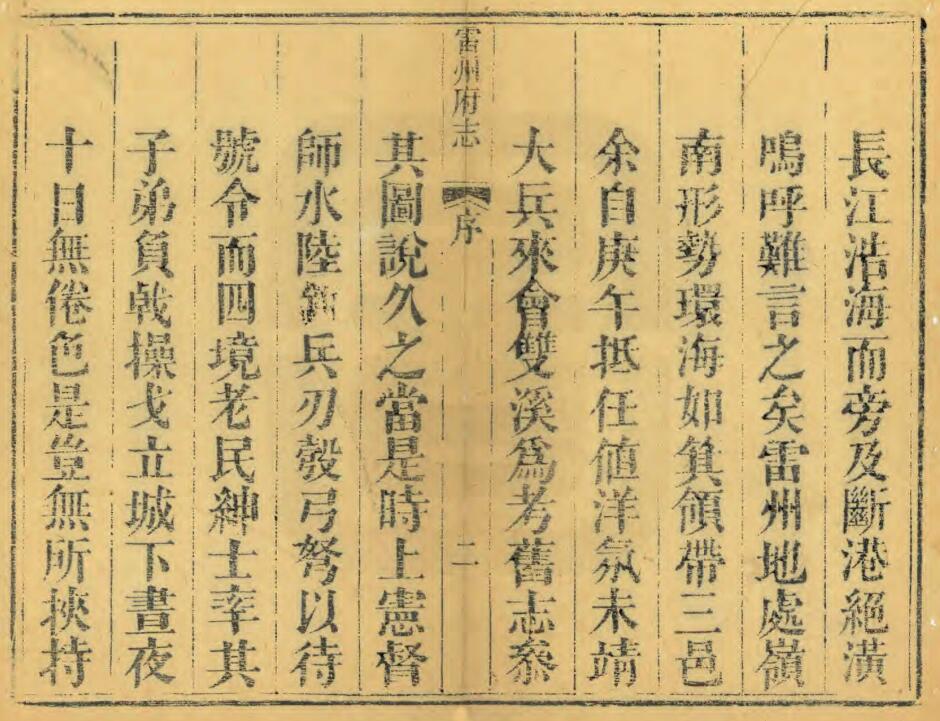 長江浩海而旁及斷港絕潢
嗚呼難言之矣雷州地處嶺
南形勢環海如箕領帶三邑
余自庚午抵任值洋氛未靖
大兵來會雙溪爲考舊志叅
雷州府志
序
二
其圖說久之當是時上憲督
師水陸劍兵刃彀弓弩以待
號令而四境老民紳士率其
子弟負戟操戈立城下晝夜
十日無倦色是豈無所挾持